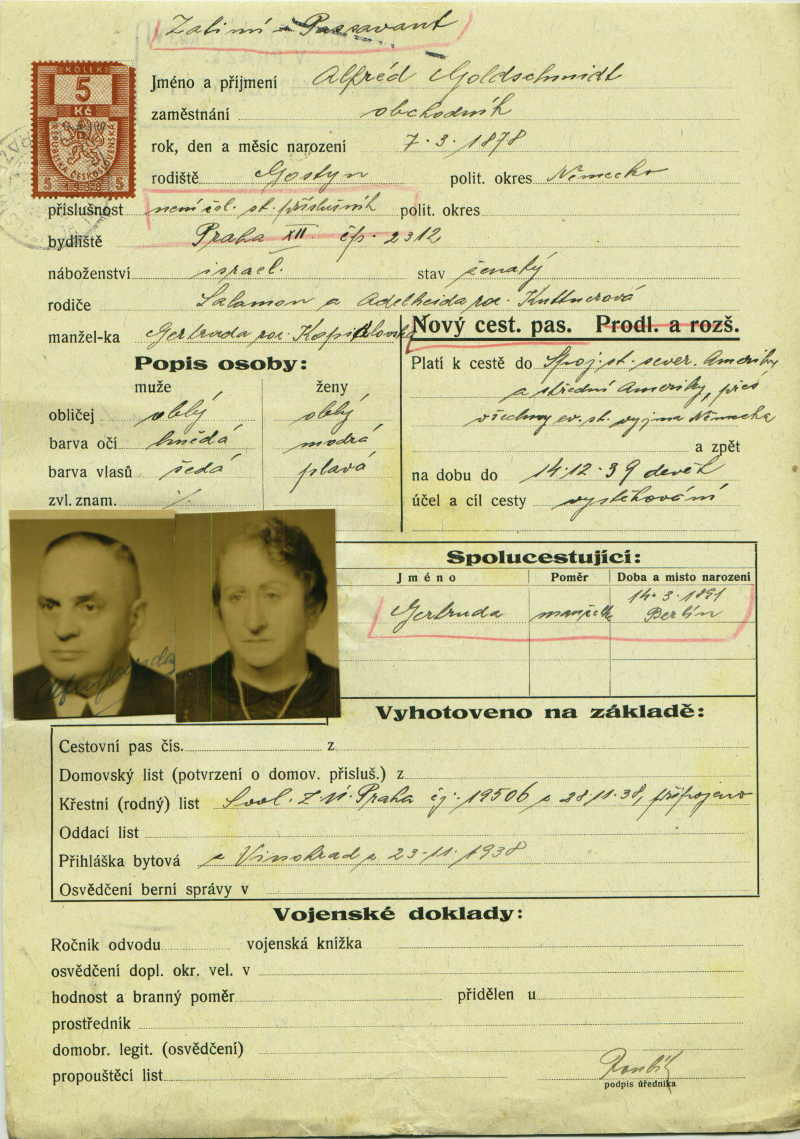 Zatimní - Passavant
KOLEK
5
Kč
REPUBLIKA ČESKOSLOVENSKÁ
5 5
Jméno a příjmení Alfréd Goldschmidt
zaměstnání obchodník
rok, den a měsíc narození 7.3.1878
rodiště Gostyn polit. okres Německo
příslušnost není čsl. st. příslušník polit. okres
bydliště Praha XII čp. 2312
náboženství israel. stav ženatý
rodiče Salamon a Adelheida roz. Kuttnerová
manžel-ka Gertruda roz.
Nový cest. pas. Prodl. a rozš.
Popis osoby:
muže ženy
obličej oblý oblý
barva očí hnědá modrá
barva vlasů šedá plavá
zvl. znam. %
Platí k cestě do Spoj. st. sever. Ameriky
a střední Ameriky, přes
všechny ev. st. vyjma Německa
a zpět
na dobu do 14.12.39 devět
účel a cíl cesty vystěhování
Spolucestující:
Jméno Poměr Doba a místo narození
Gertruda manželka 14.3.1891 Berlín
Vyhotoveno na základě:
Cestovní pas čís. z
Domovský list (potvrzení o domov. přísluš.) z
Křestní (rodný) list Z.Ú. Praha čj. 19506 z 28.11.38, připojeno
Oddací list
Přihláška bytová z Vinohrad z 23.11.1938
Osvědčení berní správy v
Vojenské doklady:
Ročník odvodu vojenská knížka
osvědčení dopl. okr. vel. v
hodnost a branný poměr přidělen u
prostředník
domobr. legit. (osvědčení)
propouštěcí list
podpis úředníka